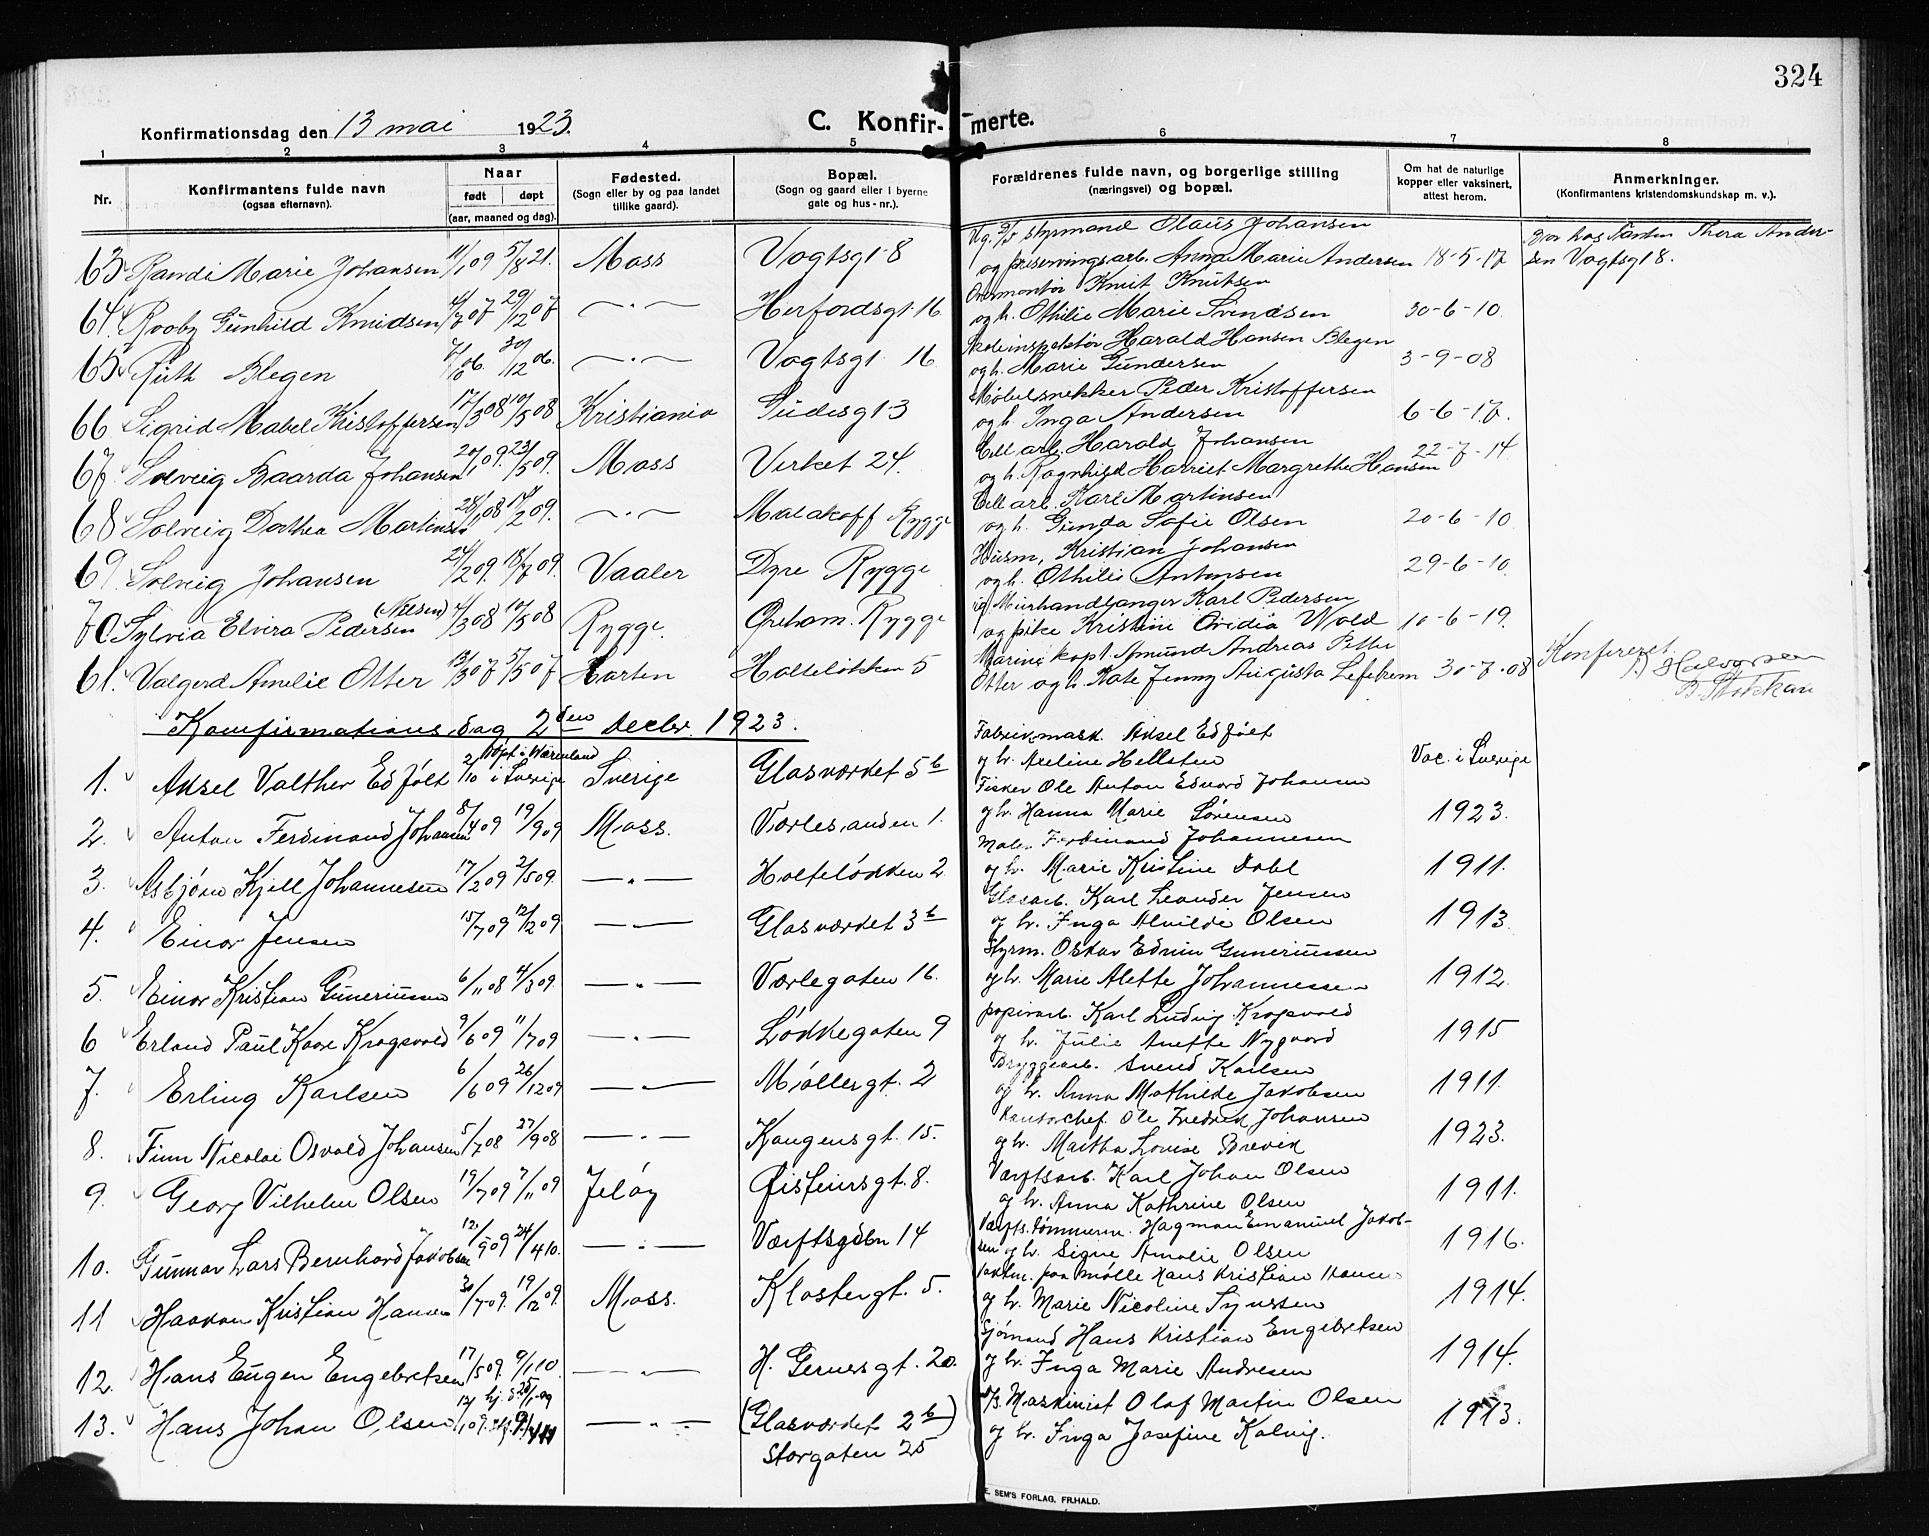 324
Konfirmationsdag den 13 mai 1923.
C. Konfir-merte.
1 2 3 4 5 6 7 8
Nr. Konfirmantens fulde navn (ogsaa efternavn). Naar født døpt (aar, maaned og dag). Fødested. (Sogn eller by og paa landet tillike gaard). Bopæl. (Sogn og gaard eller i byerne gate og hus-nr.). Forældrenes fulde navn, og borgerlige stilling (næringsvei) og bopæl. Om hat de naturlige kopper eller vaksinert, attest herom. Anmerkninger. (Konfirmantens kristendomskundskap m. v.).
63 Randi Marie Johansen 11/1 09 5/8 21. Moss Vogtsgt 8 styrmand Olaus Johansen
og preserveringsarb. Anna Marie Andersen 18-5-17 Bor hos Tanten Thora Ander-
sen Vogtsgt 8.
64. Rooby Gunhild Knudsen 4/7 07 29/12 07 —"— Herfordsgt 16 Overmontør Knut Knutsen
og h. Othilie Marie Svendsen 30-6-10.
65 Ruth Blegen 30/12 06. —"— Vogtsgt 16 Skoleinspektør Harald Hansen Blegen
og h. Marie Gundersen 3-9-08
66 Sigrid Mabel Kristoffersen 17/3 08 10/5 08 Kristiania Gudesgt 3 Møbelsnekker Peder Kristoffersen
og h. Inga Andersen 6-6-17.
67. Solveig Baarda Johansen 20/1 09. 23/5 09. Moss Verket 24. Cell arb. Harald Johansen
og h. Ragnhild Harriet Margrethe Hansen 22-7-14
68 Solveig Dorthea Martinsen 28/1 08 14/2 09. —"— Malakoff Rygge Cell arb. Karl Martinsen
og h. Gunda Sofie Olsen 20-6-10
69. Solveig Johansen 24/2 09. 18/7 09. Vaaler Dyre Rygge Husm. Kristian Johansen
og h. Othilie Antonsen 29-6-10
70. Sylvia Elvira Pedersen (Nilsen) 4/3 08 10/5 08 Rygge. Ørehom. Rygge Murhandlanger Karl Pedersen
og pike Kristine Ovidia Wold 10-6-19.
61. Valgerd Amelie Otter 13/3 07 5/5 07 Horten Holteløkken 5 Marine kapt. Amund Andreas Petter
Otter og h. Kate Jenny Augusta Lefekem 30-7-08 Konfereret
Halvorsen
B. Stokkan
Konfirmations dag 2den Decbr. 1923.
1. Aksel Valther Edfølt Døpt i Wærmland i Sverige Sverige Glasværket 5b Fabrikmask. Aksel Edfølt
og h. Axeline Hellsten Vac. i Sverige
2. Anton Ferdinand Johansen 8/4 09 19/9 09 Moss. Vorlesanden 1. Fisker Ole Anton Edvard Johansen
og h. Hanna Marie Sørensen 1923.
3. Asbjørn Kjell Johannesen 17/2 09 2/5 09. —"— Holteløkken 2 Maler Ferdinand Johannesen
og h. Marie Kristine Dahl 1911.
4. Einar Jensen 15/7 09 12/2 09 —"— Glasværket 3b Glasarb. Karl Leander Jensen
og h. Inga Alvilde Olsen 1913.
5. Einar Kristian Guneriussen 6/11 08 4/3 09. —"— Værlegaten 16. Styrm. Oskar Edvin Guneriussen
og h. Marie Alette Johannessen 1912.
6 Erland Paul Kaare Krogsvold 9/6 09 11/7 09 —"— Løkkegaten 9 papirarb. Karl Ludvig Krogsvold
og h. Julie Anette Nygaard 1915
7. Erling Karlsen 6/6 09 26/12 09 —"— Møllergt. 2 Bryggearb. Svend Karlsen
og h. Anna Mathilde Jakobsen 1911.
8. Finn Nicolai Osvald Johansen 5/7 08 27/9 08 —"— Kongensgt. 15. Kontorchef. Ole Fredrik Johansen
og h. Martha Lovise Brevik 1923.
9. Georg Vilhelm Olsen 19/7 09 7/11 09 Jeløy Øisteinsgt. 8. Værftsarb. Karl Johan Olsen
og h. Anna Kathrine Olsen 1911.
10. Gunnar Lars Bernhard Jakobsen 12/9 09 24/4 10. —"— Værftsgaten 14 Værfts. tømmerm. Hagman Emanuel Jakob-
sen og h. Signe Amalie Olsen 1916.
11 Haakon Kristian Hansen 30/7 09. 19/12 09. Moss. Klostergt. 5. paa mølle Hans Kristian Hansen
og h. Marie Nicoline Synssen 1914.
12. Hans Eugen Engebretsen 17/5 09. 9/1 10 —"— H. Gernersgt. 20. Sjømand Hans Kristian Engebretsen
og h. Inga Marie Andresen 1914.
13. Hans Johan Olsen —"— (Glasværket 2b) Maskinist Olaf Martin Olsen
Storgaten 25 og h. Inga Josefine Kolvig. 1913.
E. SEM'S FORLAG, FR.HALD.